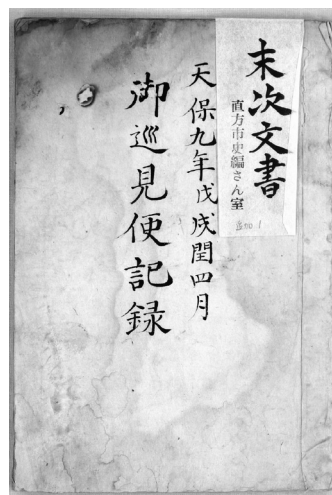 末次文書
直方市史編さん室
追加1
天保九年戊戌閏四月
御巡見便記録